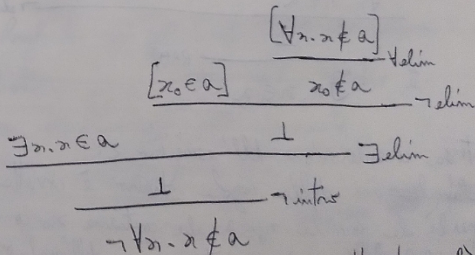 [∀x. x ∉ a]
∀elim
[x₀ ∈ a] x₀ ∉ a
¬elim
∃x. x ∈ a ⊥
∃elim
⊥
¬intro
¬∀x. x ∉ a